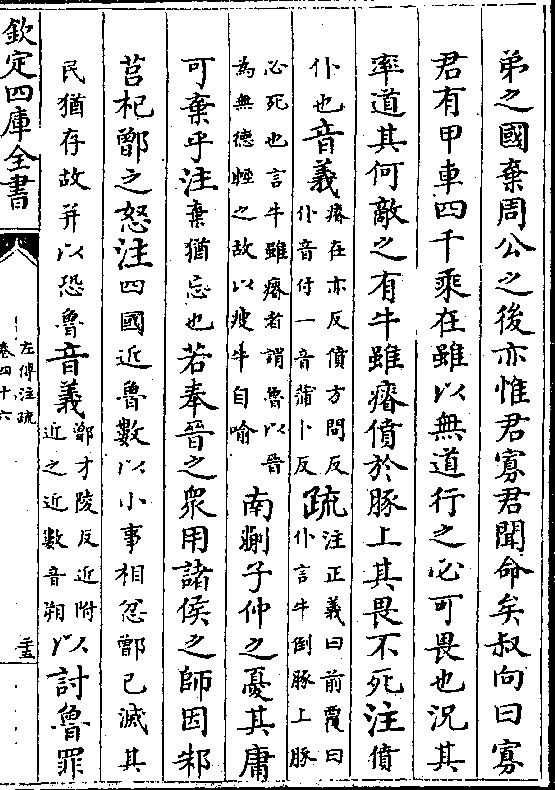 弟之國棄周公之後亦惟君寡君聞命矣叔向曰寡
君有甲車四千乘在雖以無道行之必可畏也況其
率道其何敵之有牛雖瘠僨於豚上其畏不死注僨
仆也音義瘠在亦反僨方問反
仆音付一音蒲卜反疏注正義曰前覆曰
仆言牛倒豚上豚
必死也言牛雖瘠者謂魯以晉
為無德輕之故以瘦牛自喻南蒯子仲之憂其庸
可棄乎注棄猶忘也若奉晉之衆用諸侯之師因邾
莒杞鄫之怒注四國近魯數以小事相忿鄫已滅其
民猶存故并以恐魯音義鄫才陵反近附
近之近數音朔以討魯罪
欽定四庫全書
左傳注疏
卷四十六